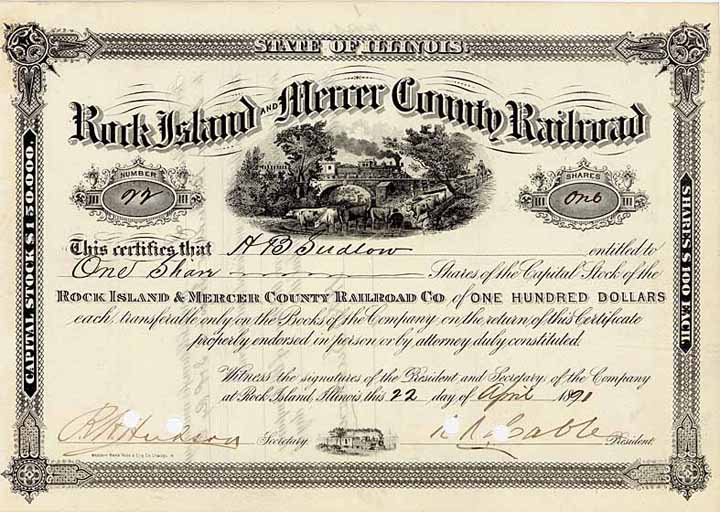 STATE OF ILLINOIS.
Rock Island AND Mercer County Railroad
NUMBER
22
SHARES
One
CAPITAL STOCK $150,000.
SHARES $100 EACH.
This certifies that A B Sudlow entitled to
One Share Shares of the Capital Stock of the
ROCK ISLAND & MERCER COUNTY RAILROAD CO of ONE HUNDRED DOLLARS
each, transferable only on the Books of the Company on the return of this Certificate
properly endorsed in person or by attorney duly constituted.
Witness the signatures of the President and Secretary of the Company
at Rock Island, Illinois this 22 day of April 1891
Hudson Secretary R R Cable President.
Western Bank Note & Eng. Co. Chicago.